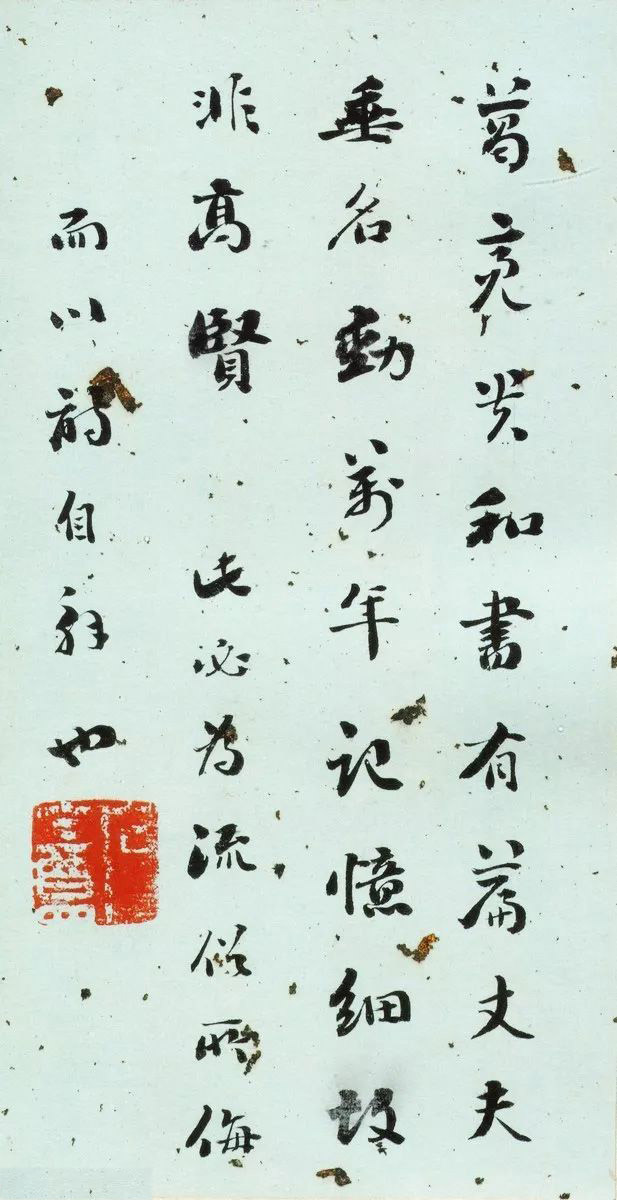 葛亮貴和書有篇丈夫
垂名動萬年記憶細故
非高賢 此必為流俗所侮
而以詩自解也